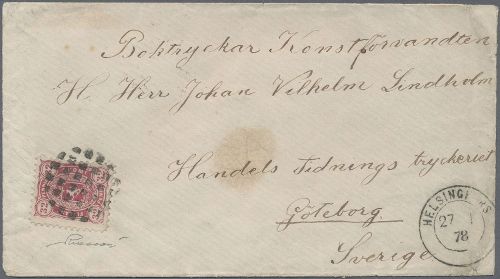 Boktryckar Konstförvandten
H. Herr Johan Vilhelm Lindholm
Handels Tidnings tryckeriet
Göteborg.
Sverige
32
32
HELSINGFORS
27
78